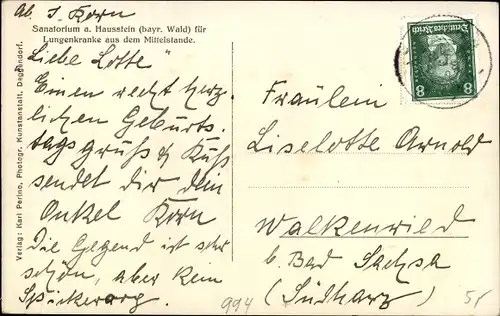 Ab. J. Korn
Sanatorium a. Hausstein (bayr. Wald) für
Lungenkranke aus dem Mittelstande.
Liebe Lotte"
Einen recht herz
lichen Geburts.
tagsgruß & Kuß
sendet dir dein
Onkel Korn
Die Gegend ist sehr
schön, aber kein
Verlag: Karl Perino, Photogr. Kunstanstalt, Deggendorf.
Deutsches Reich
8 8
Fräulein
Liselotte Arnold
Walkenried
b. Bad Sachsa
(Südharz)
994